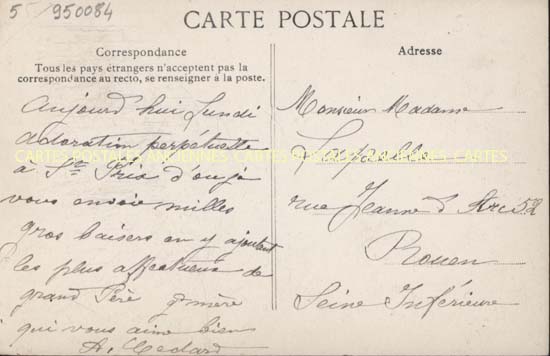 5 / 950084
CARTE POSTALE
Correspondance
Tous les pays étrangers n'acceptent pas la
correspondance au recto, se renseigner à la poste.
Aujourd'hui Lundi
adoration perpétuelle
à St d'ou je
vous envoie milles
gros baisers en y ajoutant
les plus affectueux de
grand Père gmère
qui vous aime bien
A.
Adresse
Monsieur Madame
rue Jeanne d'Arc 52
Rouen
Seine Inférieure
CARTES POSTALES ANCIENNES CARTES POSTALES ANCIENNES CARTES